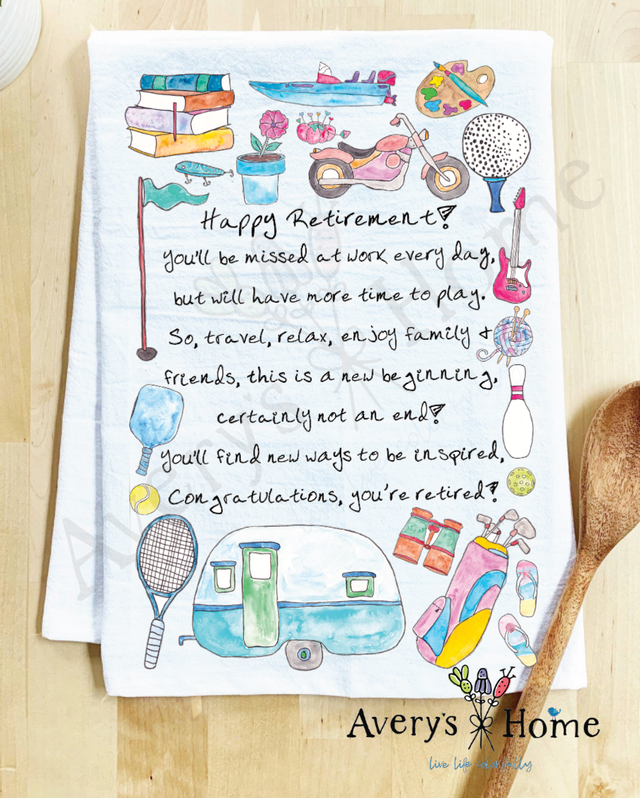 Happy Retirement!
You'll be missed at work every day,
but will have more time to play.
So, travel, relax, enjoy family &
friends, this is a new beginning,
certainly not an end!
You'll find new ways to be inspired,
Congratulations, you're retired!
Avery's Home
live life
Avery's Home